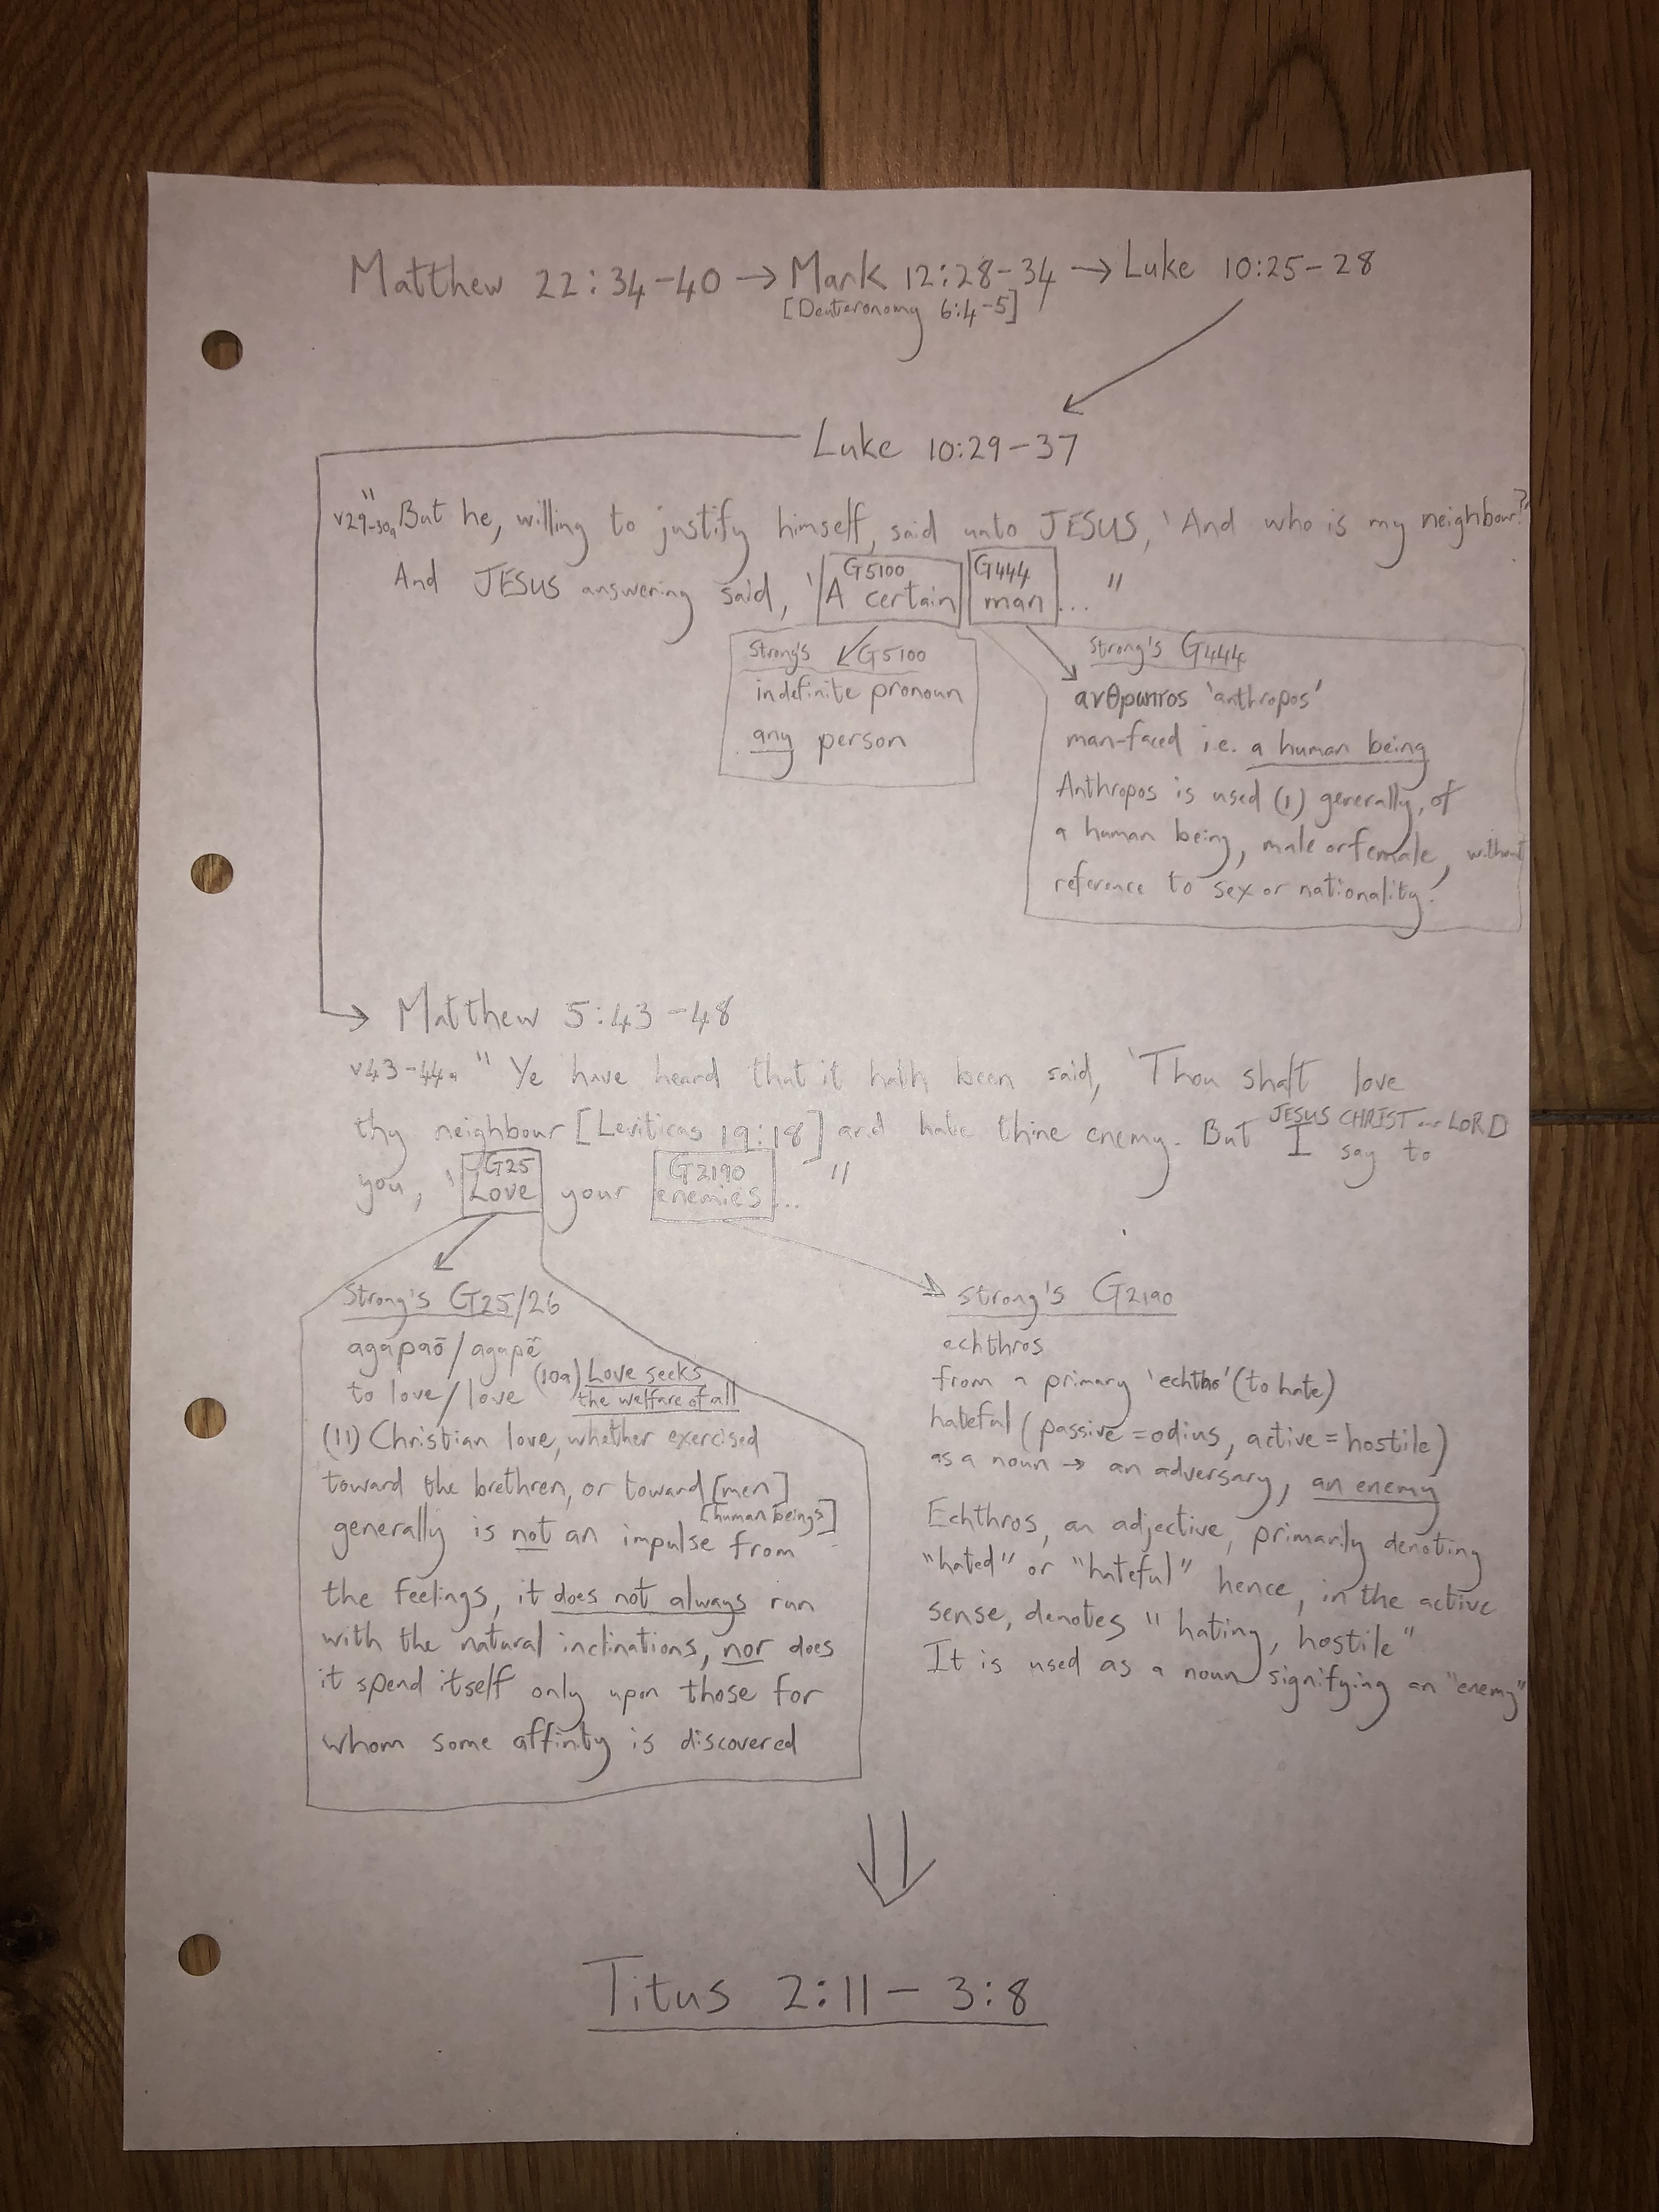 Matthew 22:34-40 → Mark 12:28-34 → Luke 10:25-28
[Deuteronomy 6:4-5]
Luke 10:29-37
v29-30a "But he, willing to justify himself, said unto JESUS, 'And who is my neighbour?'
And JESUS answering said, 'A certain man... "
G5100 G444
Strong's G5100
indefinite pronoun
any person
Strong's G444
ανθρωπos 'anthropos'
man-faced i.e. a human being
Anthropos is used (1) generally, of
a human being, male or female, without
reference to sex or nationality.
Matthew 5:43-48
v43-44a "Ye have heard that it hath been said, 'Thou shalt love
thy neighbour [Leviticus 19:18] and hate thine enemy. But I say to
JESUS CHRIST our LORD
you, 'Love your enemies... "
G25 G2190
Strong's G25/26
agapaō/agapē
to love/love (10a) Love seeks
the welfare of all
(11) Christian love, whether exercised
toward the brethren, or toward [men]
[human beings]
generally is not an impulse from
the feelings, it does not always run
with the natural inclinations, nor does
it spend itself only upon those for
whom some affinity is discovered
Strong's G2190
echthros
from a primary 'echtho' (to hate)
hateful (passive = odius, active = hostile)
as a noun → an adversary, an enemy
Echthros, an adjective, primarily denoting
"hated" or "hateful" hence, in the active
sense, denotes "hating, hostile"
It is used as a noun signifying an "enemy"
Titus 2:11 - 3:8